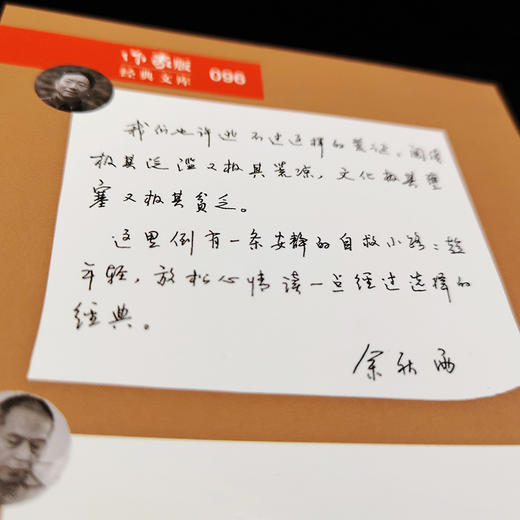 作家版
经典文库 096
我们也许逃不过这样的荒诞：阅读
极其泛滥又极其荒凉，文化极其壅
塞又极其贫乏。
这里倒有一条安静的自救小路：趁
年轻，放松心情读一点经过选择的
经典。
余秋雨